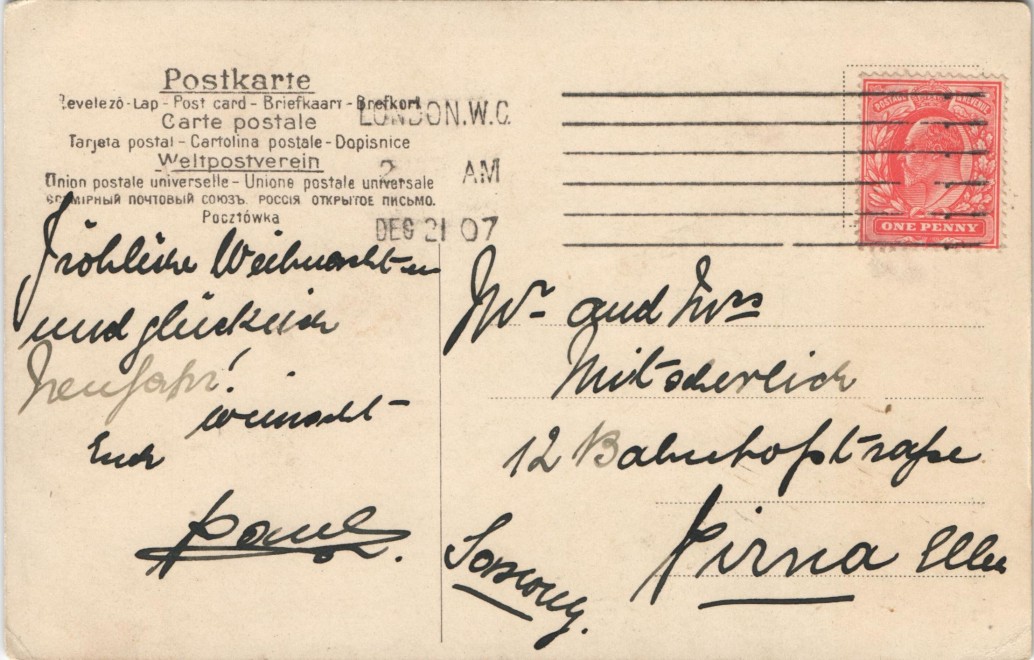 Postkarte
Levelező-Lap - Post card - Briefkaart - Brefkort
Carte postale
Tarjeta postal - Cartolina postale - Dopisnice
Weltpostverein
Union postale universelle - Unione postale universale
ВСЕМІРНЫЙ ПОЧТОВЫЙ СОЮЗЪ. РОССІЯ ОТКРЫТОЕ ПИСЬМО.
Pocztówka
LONDON.W.C.
2 AM
DEC 21 07
POSTAGE & REVENUE
ONE PENNY
Fröhliche Weihnachten
und glücklich
Neujahr!
wünscht
Euch
Paul.
Mr and Mrs
Mitscherlich
12 Bahnhofstraße
Pirna Elbe
Saxony.